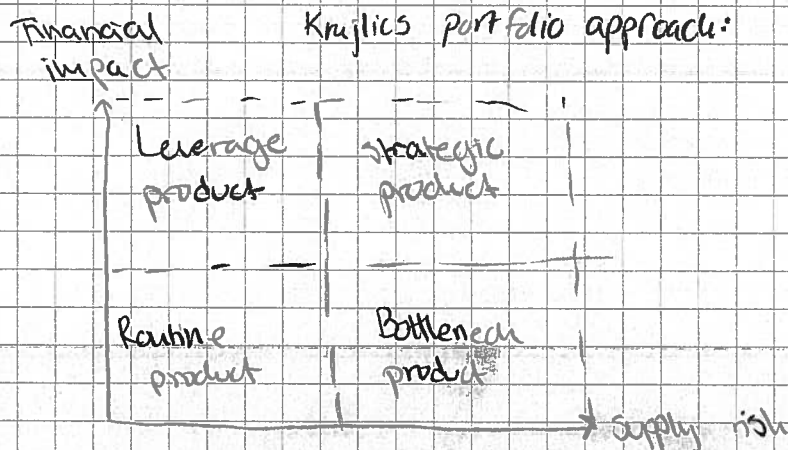 Financial
impact
Krajlics portfolio approach:
Leverage
product
strategic
product
Routine
product
Bottleneck
product
supply risk